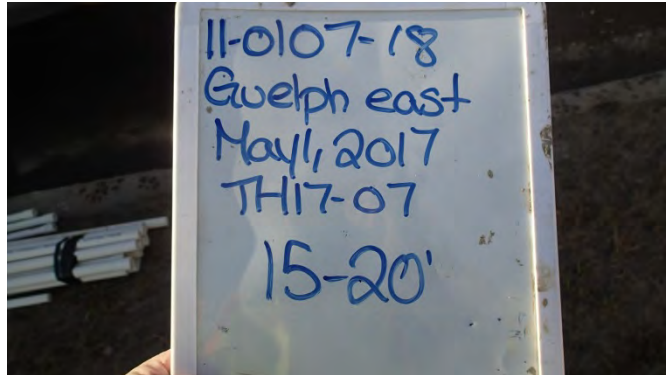 11-0107-18
Guelph east
May 1, 2017
TH17-07
15-20'